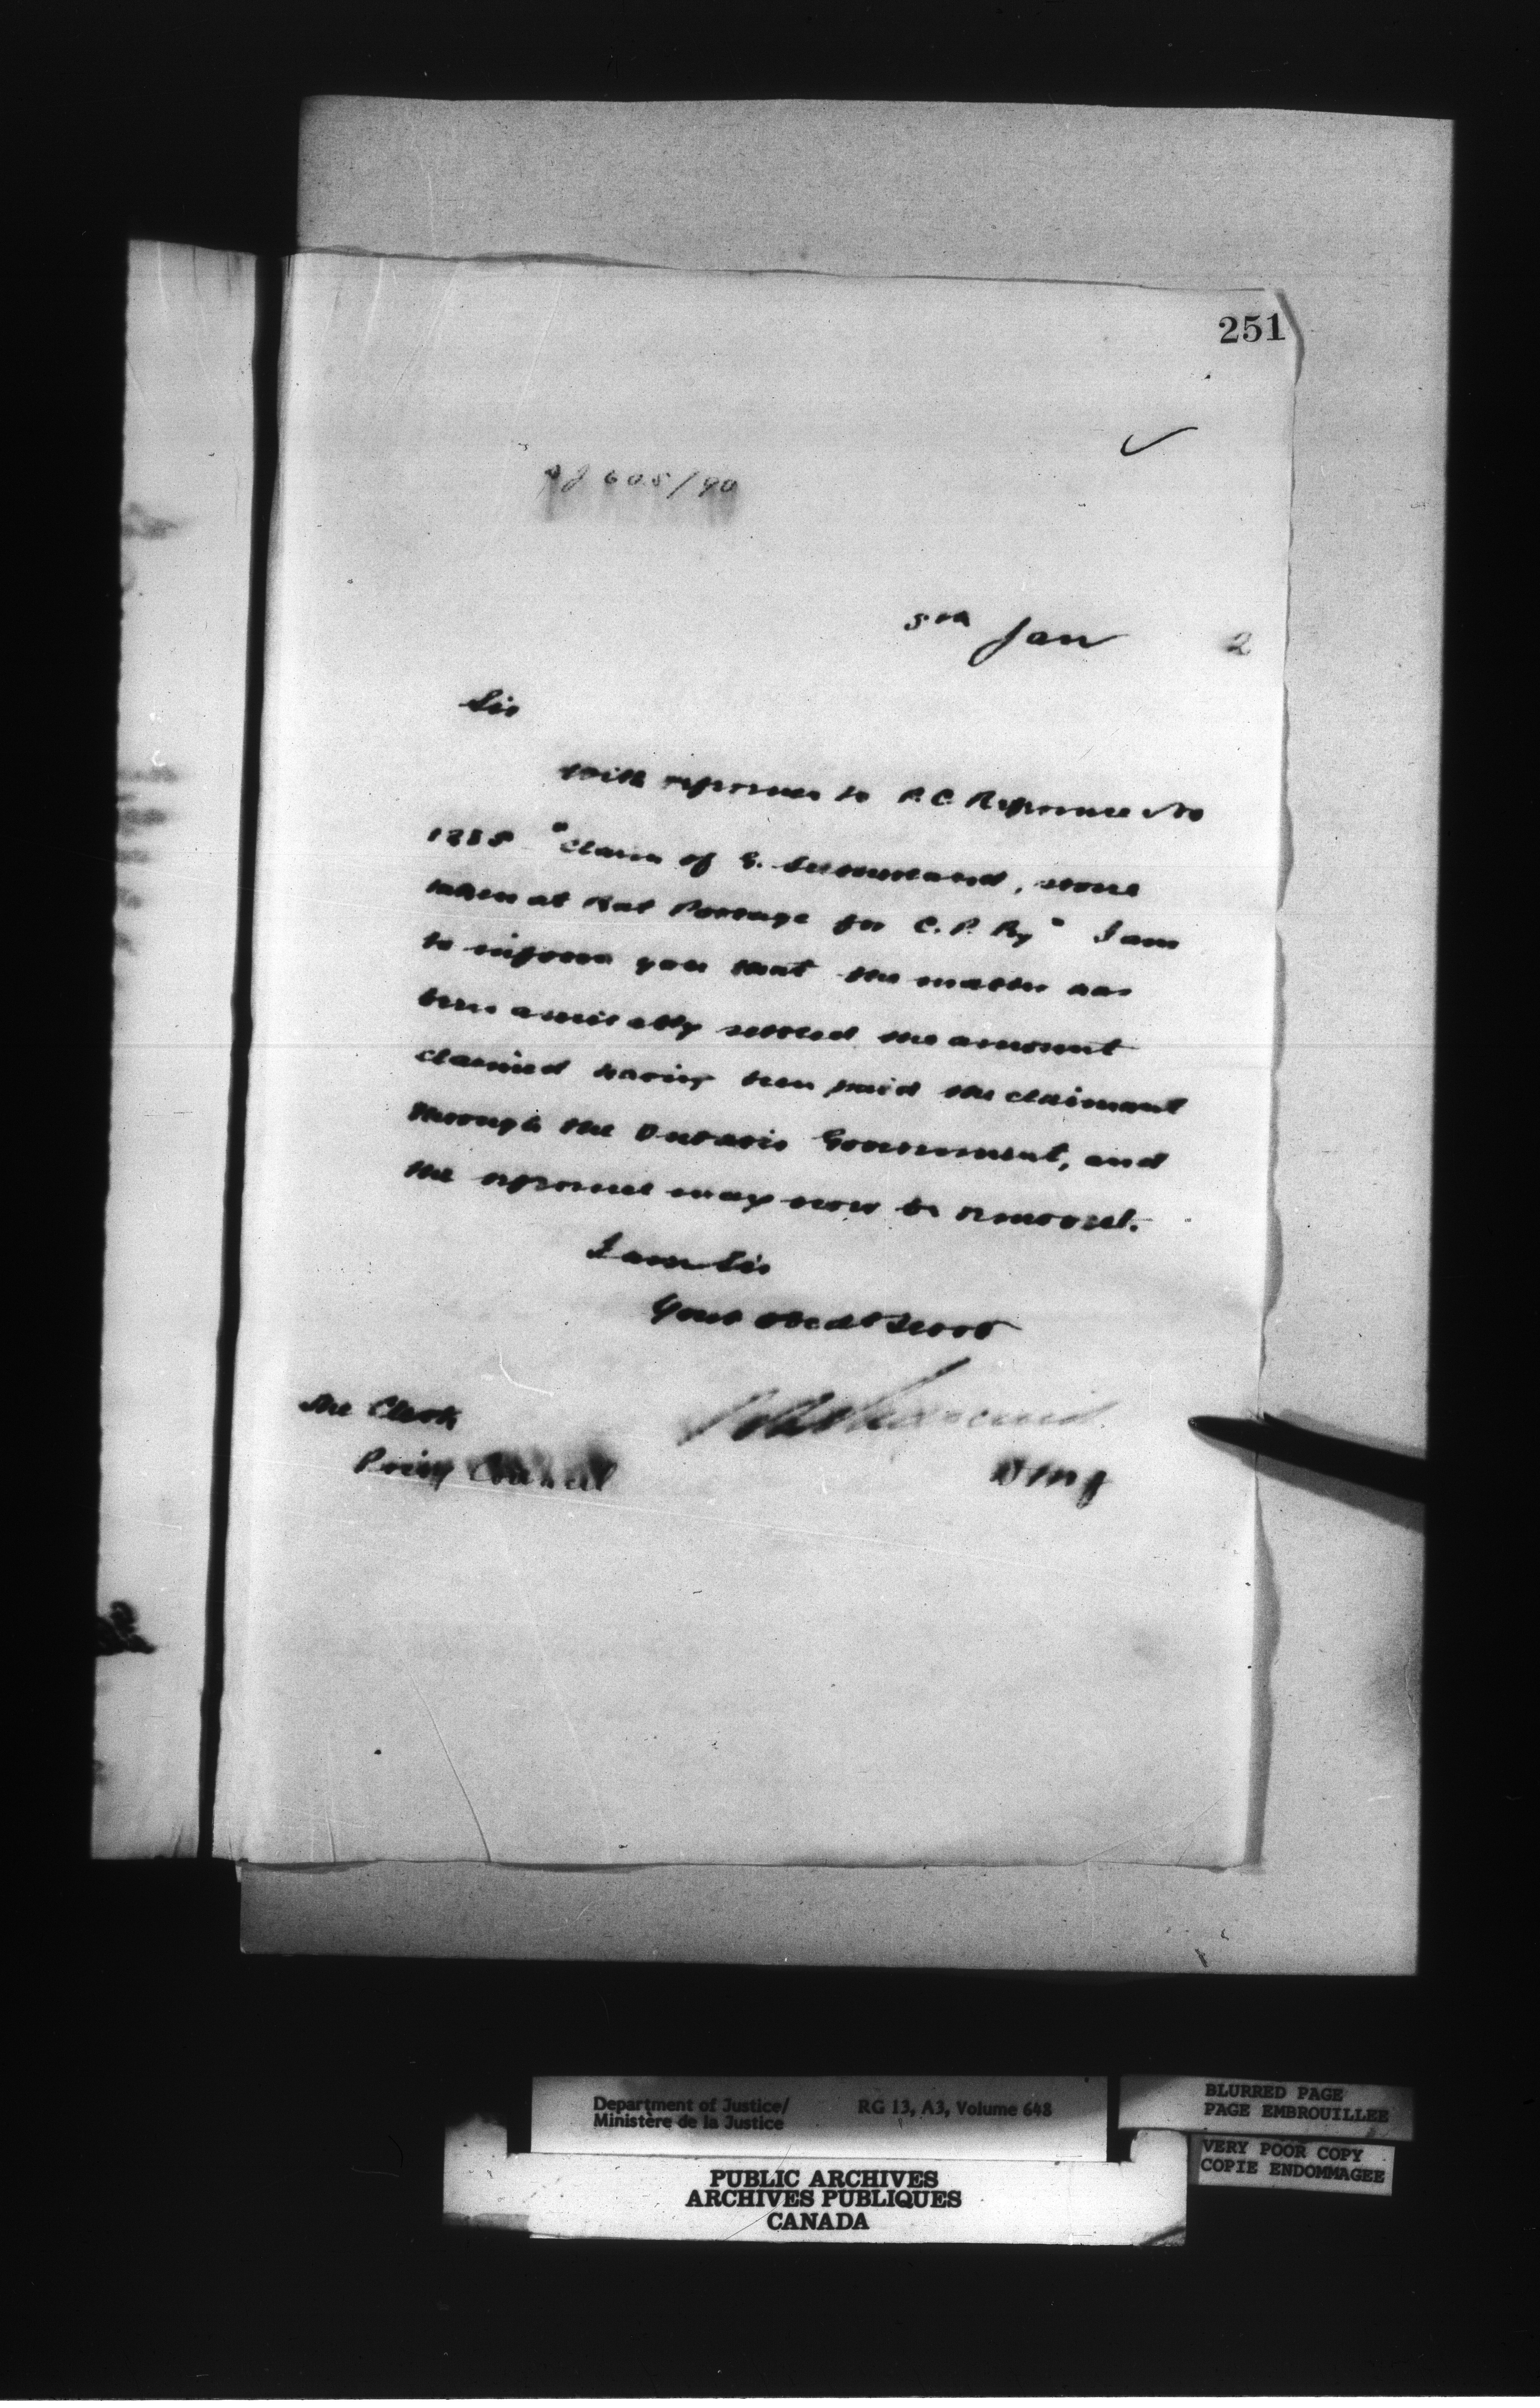 251
605/90
5th Jan 2
Sir
With reference to P.C. Reference No
"Claim of G. stone
taken at Rat Portage for C. P. Ry" I am
to inform you that the matter has
been amicably settled the amount
claimed having been paid the claimant
through the Ontario Government, and
the reference may now be removed.
I am Sir
Your Obedt Servt
The Clerk
Privy Council
D M J
Department of Justice/
Ministère de la Justice
RG 13, A3, Volume 648
BLURRED PAGE
PAGE EMBROUILLEE
VERY POOR COPY
COPIE ENDOMMAGEE
PUBLIC ARCHIVES
ARCHIVES PUBLIQUES
CANADA